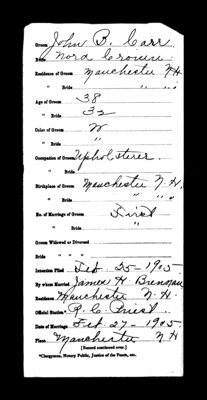 Groom John B. Carr
Bride Nora Cronin
Residence of Groom Manchester N.H.
" Bride " " "
Age of Groom 38
" Bride 32
Color of Groom W
" Bride "
Occupation of Groom Upholsterer
" Bride
Birthplace of Groom Manchester N.H.
" Bride " " "
No. of Marriage of Groom First
" Bride "
Groom Widowed or Divorced
Bride " "
Intention Filed Feb. 25-1905
By whom Married James H. Brennan
Residence Manchester N.H.
Official Station* R.C. Priest
Date of Marriage Feb. 27-1905
Place Manchester N H
[Record continued over.]
*Clergyman, Notary Public, Justice of the Peace, etc.